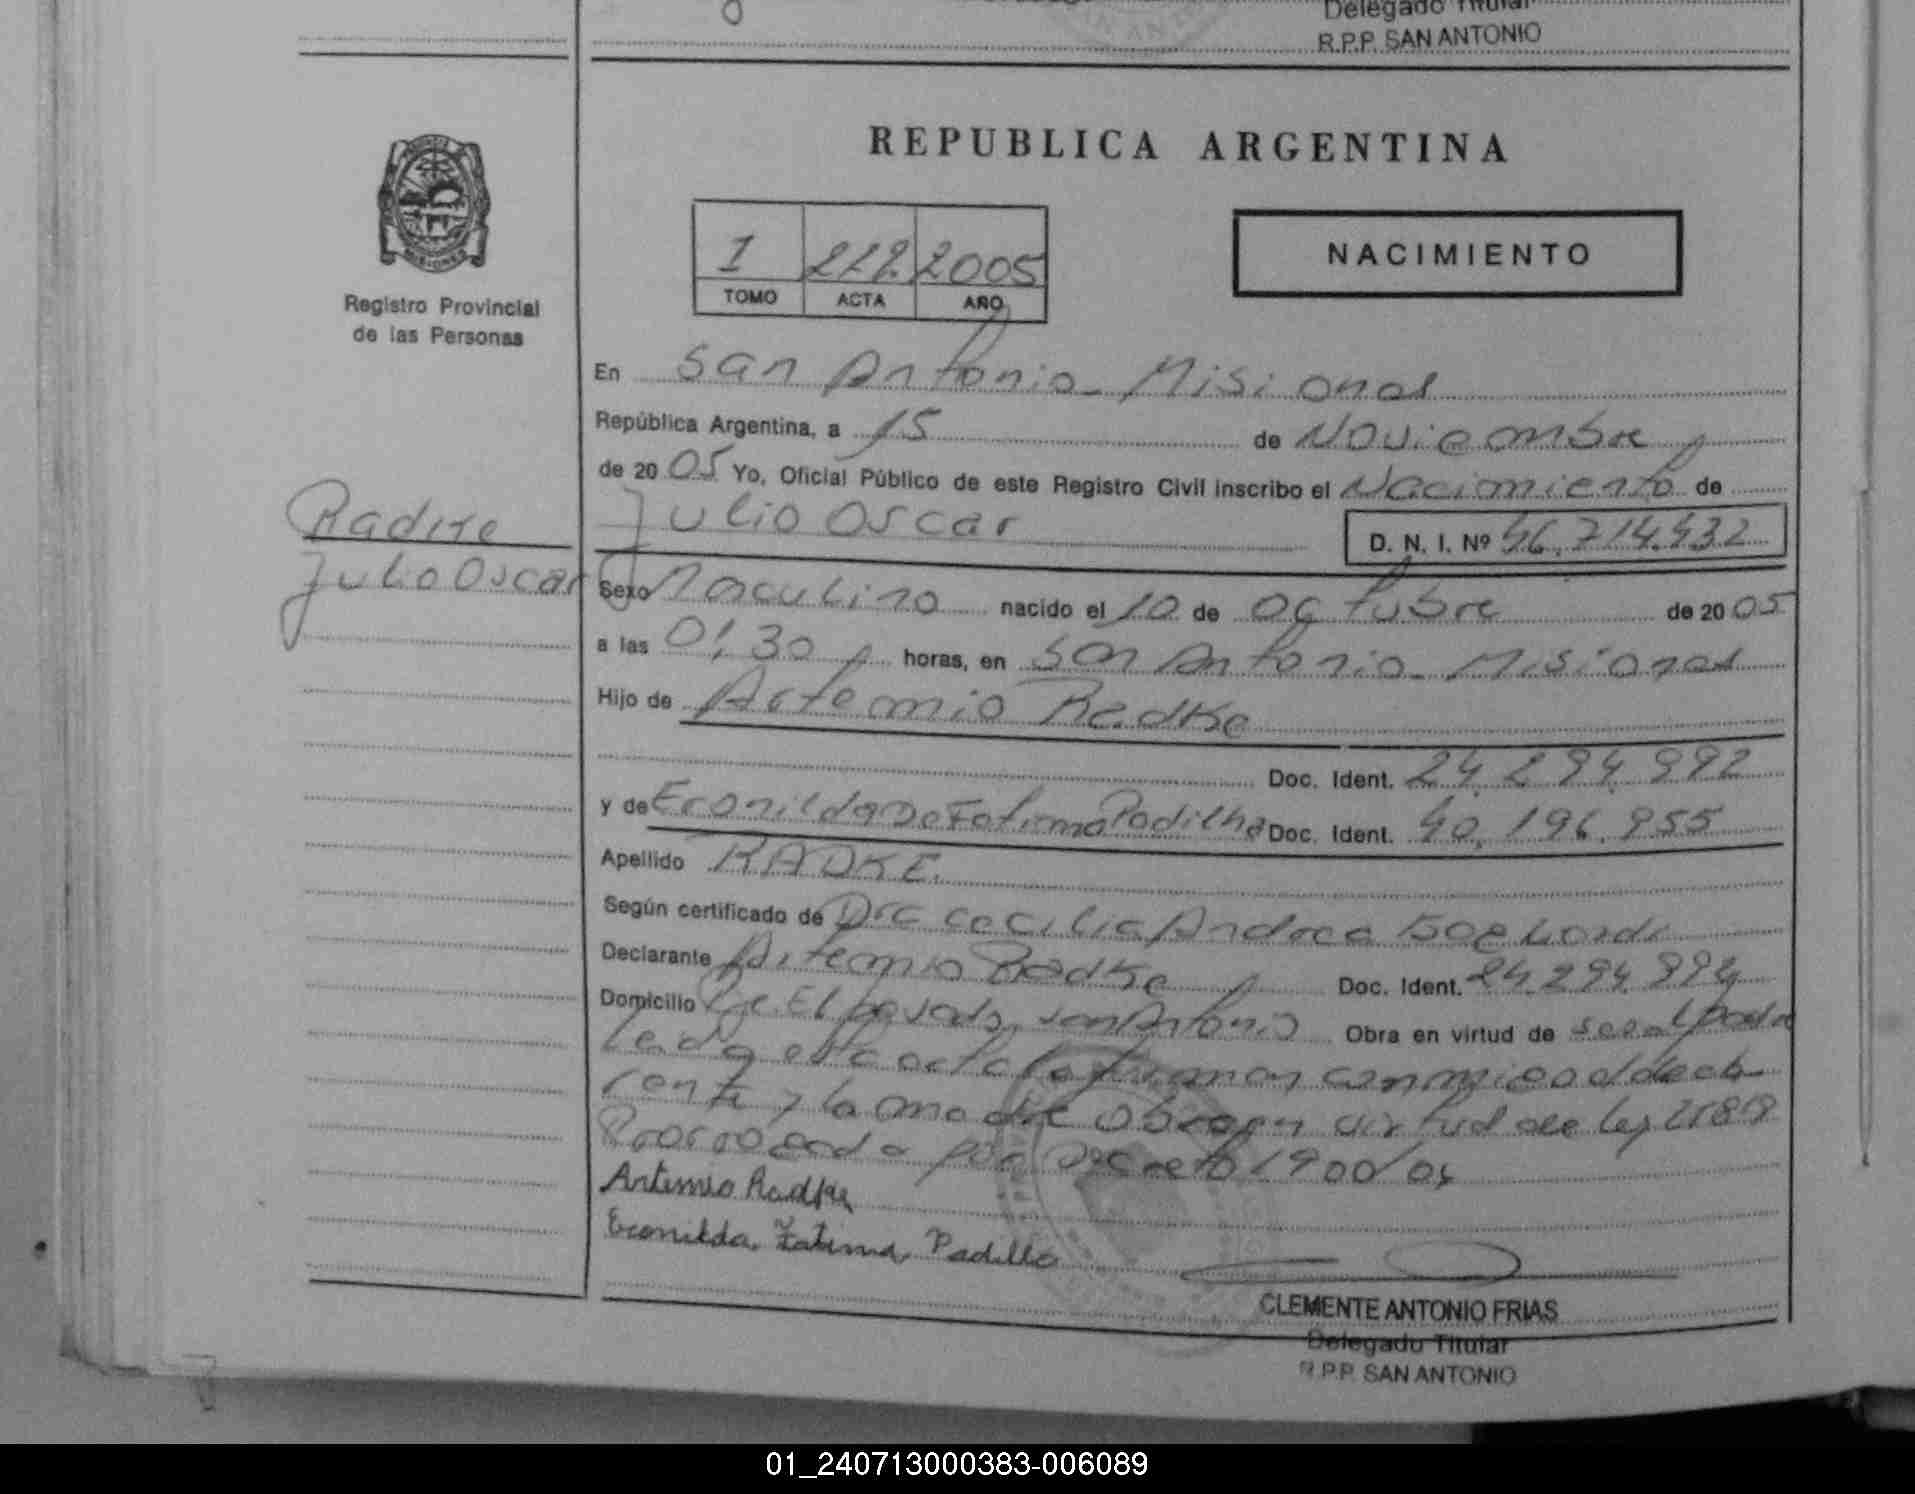 Delegado Titular
R.P.P. SAN ANTONIO
REPUBLICA ARGENTINA
MISIONES
Registro Provincial
de las Personas
I 212 2005
TOMO ACTA AÑO
NACIMIENTO
En San Antonio - Misiones
República Argentina, a 15 de Noviembre
de 2005 Yo, Oficial Público de este Registro Civil inscribo el Nacimiento de
Radke
Julio Oscar
Julio Oscar D. N. I. Nº 46.714.432
Sexo Masculino nacido el 10 de Octubre de 2005
a las 01,30 horas, en San Antonio - Misiones
Hijo de Artemio Radke
Doc. Ident. 24.294.992
y de Eronilda De Fatima Padilha Doc. Ident. 40.196.955
Apellido RADKE.
Según certificado de Dra Cecilia Andrea
Declarante Artemio Radke Doc. Ident. 24.294.992
Domicilio San Antonio Obra en virtud de
Leida esta acta la firman conmigo el decla
rante y la madre Obra en virtud de ley 25819
Prorrogada por Decreto 1900/04
Artemio Radke
Eronilda Fatima Padilla
CLEMENTE ANTONIO FRIAS
Delegado Titular
R.P.P. SAN ANTONIO
01_240713000383-006089